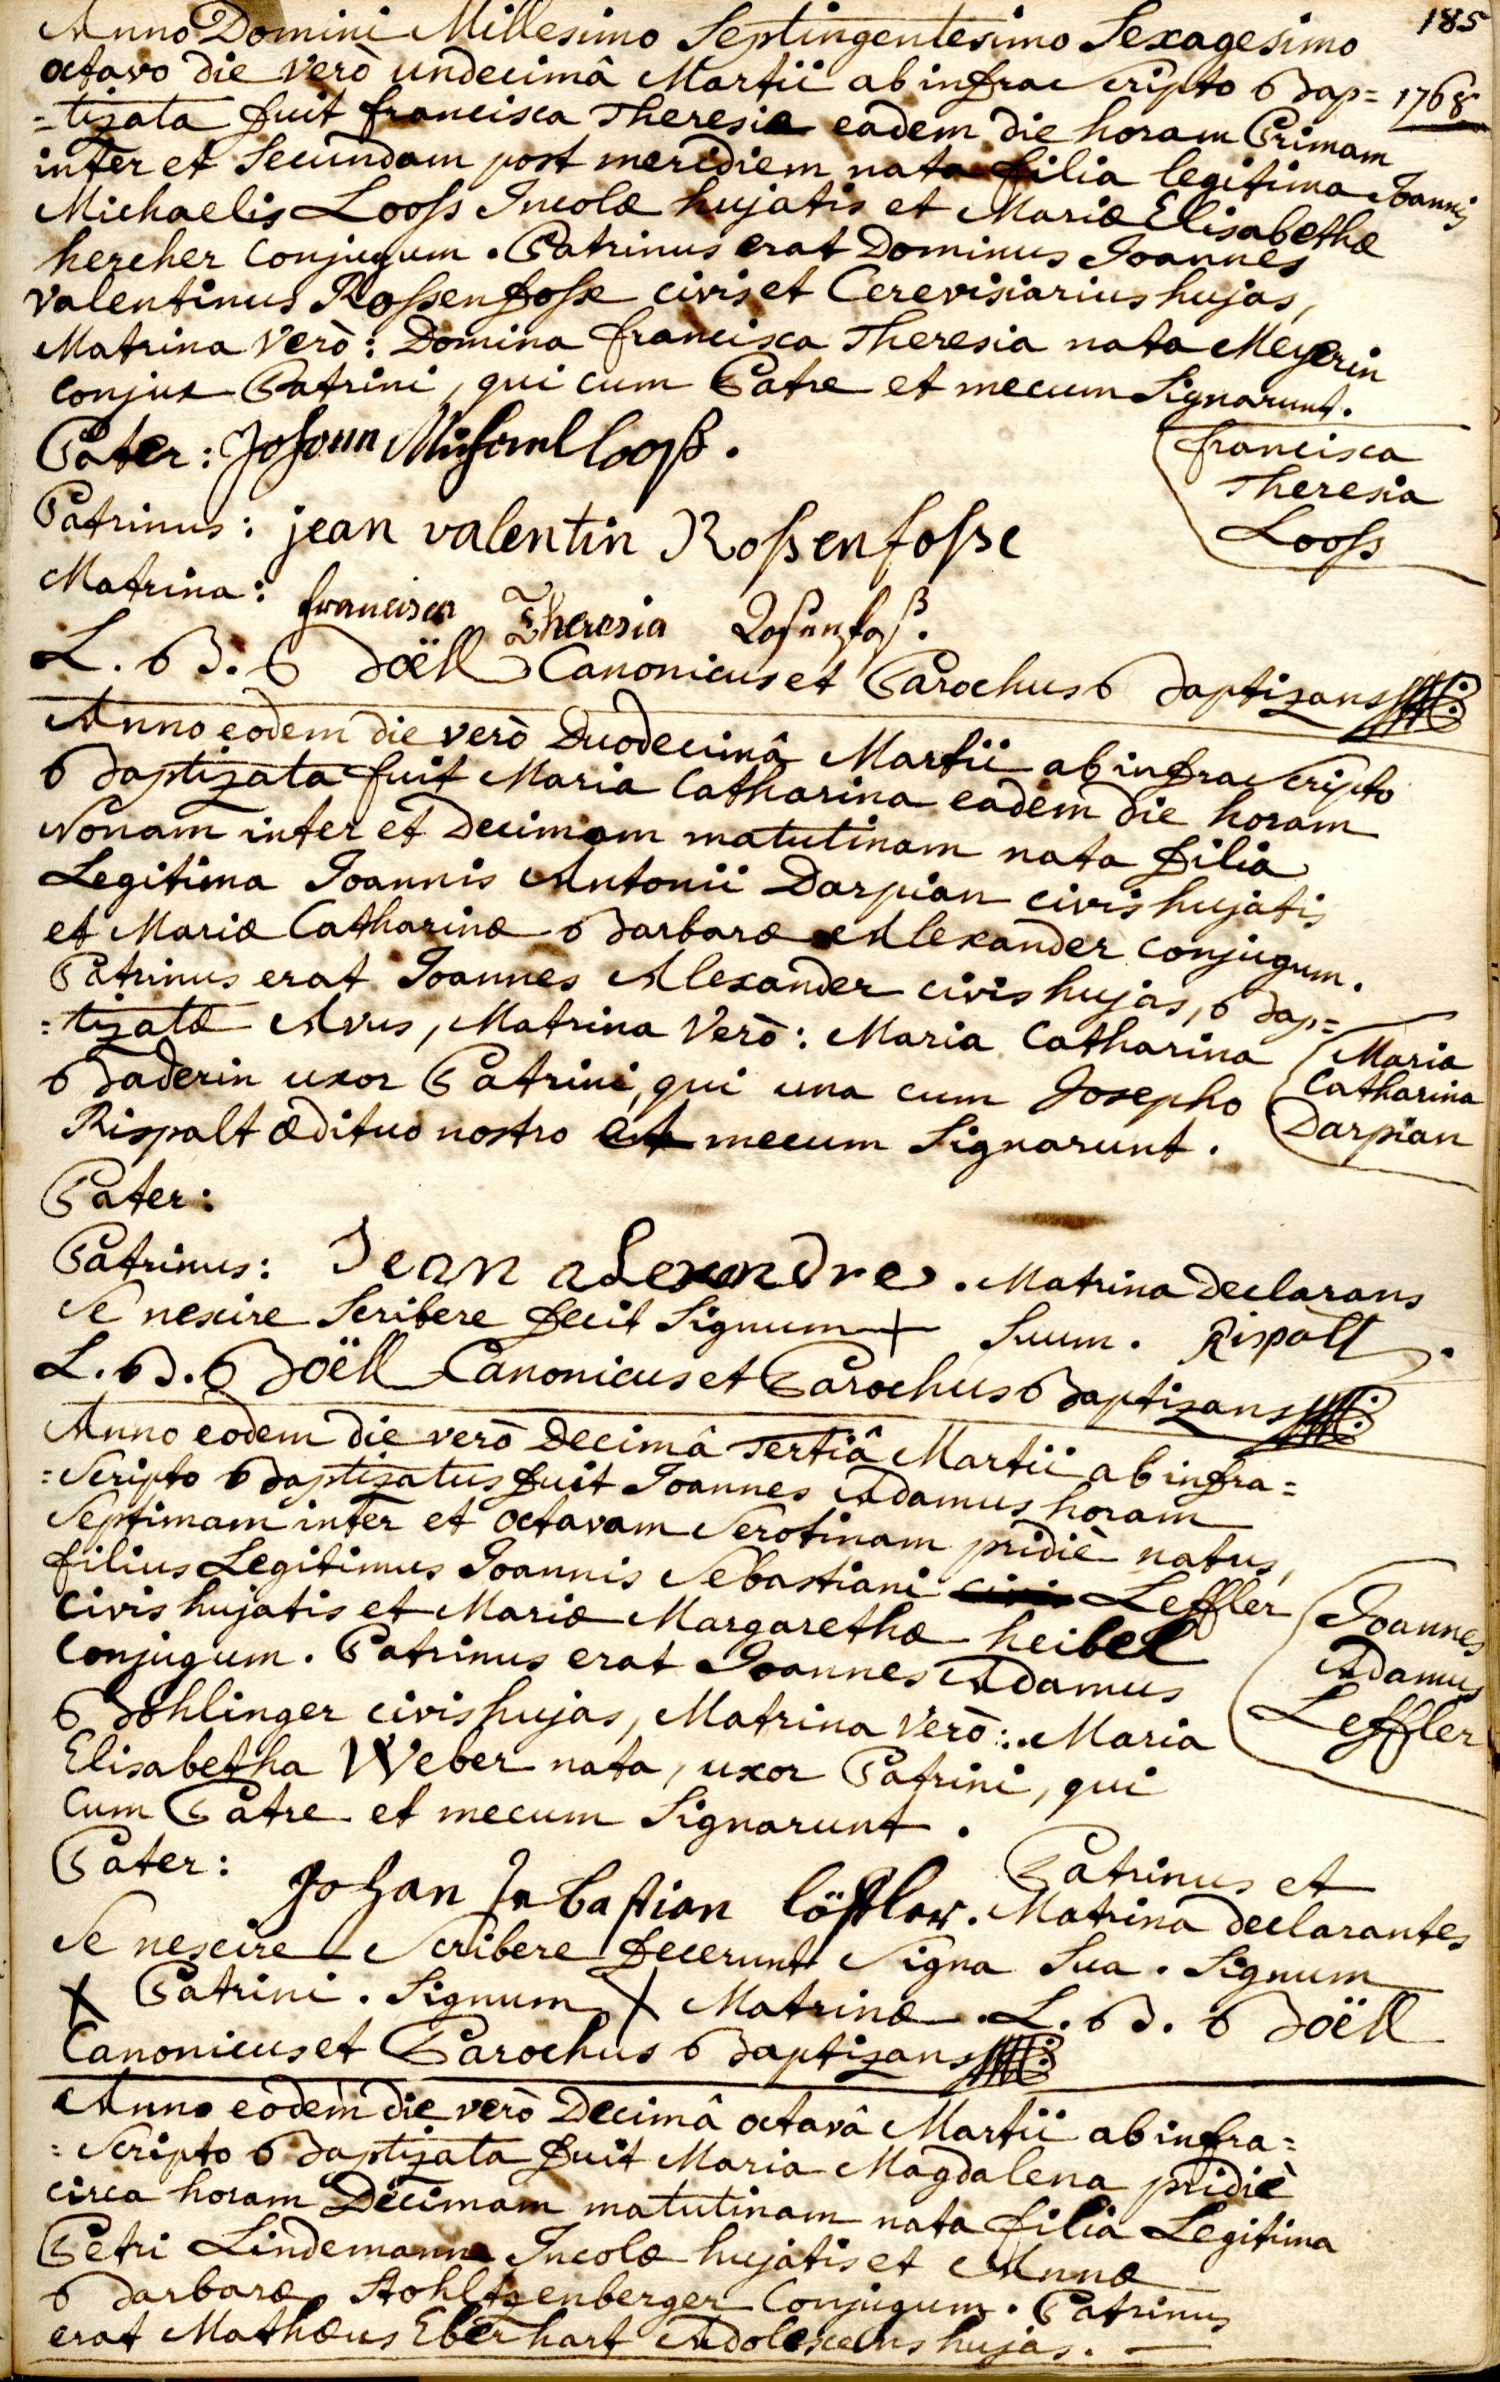 185
Anno Domini Millesimo Septingentesimo Sexagesimo
octavo die verò undecimâ Martii ab infrascripto Bap=
1768
=tizata fuit francisca Theresia eadem die horam Primam
inter et Secundam post meridiem nata filia legitima Joannis
Michaelis Looss Incolæ hujatis et Mariæ Elisabethæ
hercher Conjugum. Patrinus erat Dominus Joannes
Valentinus Rossenfosse civis et Cerevisiarius hujas,
Matrina Verò: Domina francisca Theresia nata Meyerin
conjux Patrini, qui cum Patre et mecum Signarunt.
Pater: Johann Michael looß.
francisca
Theresia
Looss
Patrinus: jean valentin Rossenfosse
Matrina: francisca Theresia Rosenfoß.
L. B. Boëll Canonicus et Parochus Baptizans
Anno eodem die verò Duodecimâ Martii ab infrascripto
Baptizata fuit Maria Catharina eadem die horam
Nonam inter et Decimam matutinam nata filia
Legitima Joannis Antonii Darpian civis hujatis
et Mariæ Catharinæ Barbaræ Alexander conjugum.
Patrinus erat Joannes Alexander civis hujas, Bap=
=tizatæ Avus, Matrina Verò: Maria Catharina
Baderin uxor Patrini, qui una cum Josepho
Rispalt ædituo nostro et mecum Signarunt.
Maria
Catharina
Darpian
Pater:
Patrinus: Jean alexandre. Matrina declarans
Se nescire Scribere fecit Signum + Suum. Rispalt.
L. B. Boëll Canonicus et Parochus Baptizans
Anno eodem die verò Decimâ Tertiâ Martii ab infra=
=Scripto Baptizatus fuit Joannes Adamus horam
Septimam inter et octavam Serotinam pridiè natus,
filius Legitimus Joannis Sebastiani civis Leffler
civis hujatis et Mariæ Margarethæ heibel
Conjugum. Patrinus erat Joannes Adamus
Bohlinger civis hujas, Matrina Verò: Maria
Elisabetha Weber nata, uxor Patrini, qui
Cum Patre et mecum Signarunt.
Joannes
Adamus
Leffler
Pater: Johan Sebastian löffler. Patrinus et
Matrina declarantes
Se nescire Scribere fecerunt Signa Sua. Signum
X Patrini. Signum X Matrinæ. L. B. Boëll
Canonicus et Parochus Baptizans
Anno eodem die verò Decimâ octavâ Martii ab infra=
=Scripto Baptizata fuit Maria Magdalena pridiè
circa horam Decimam matutinam nata filia Legitima
Petri Lindemann Incolæ hujatis et Annæ
Barbaræ Stohltzenberger Conjugum. Patrinus
erat Mathæus Eberhart Adolescens hujas.